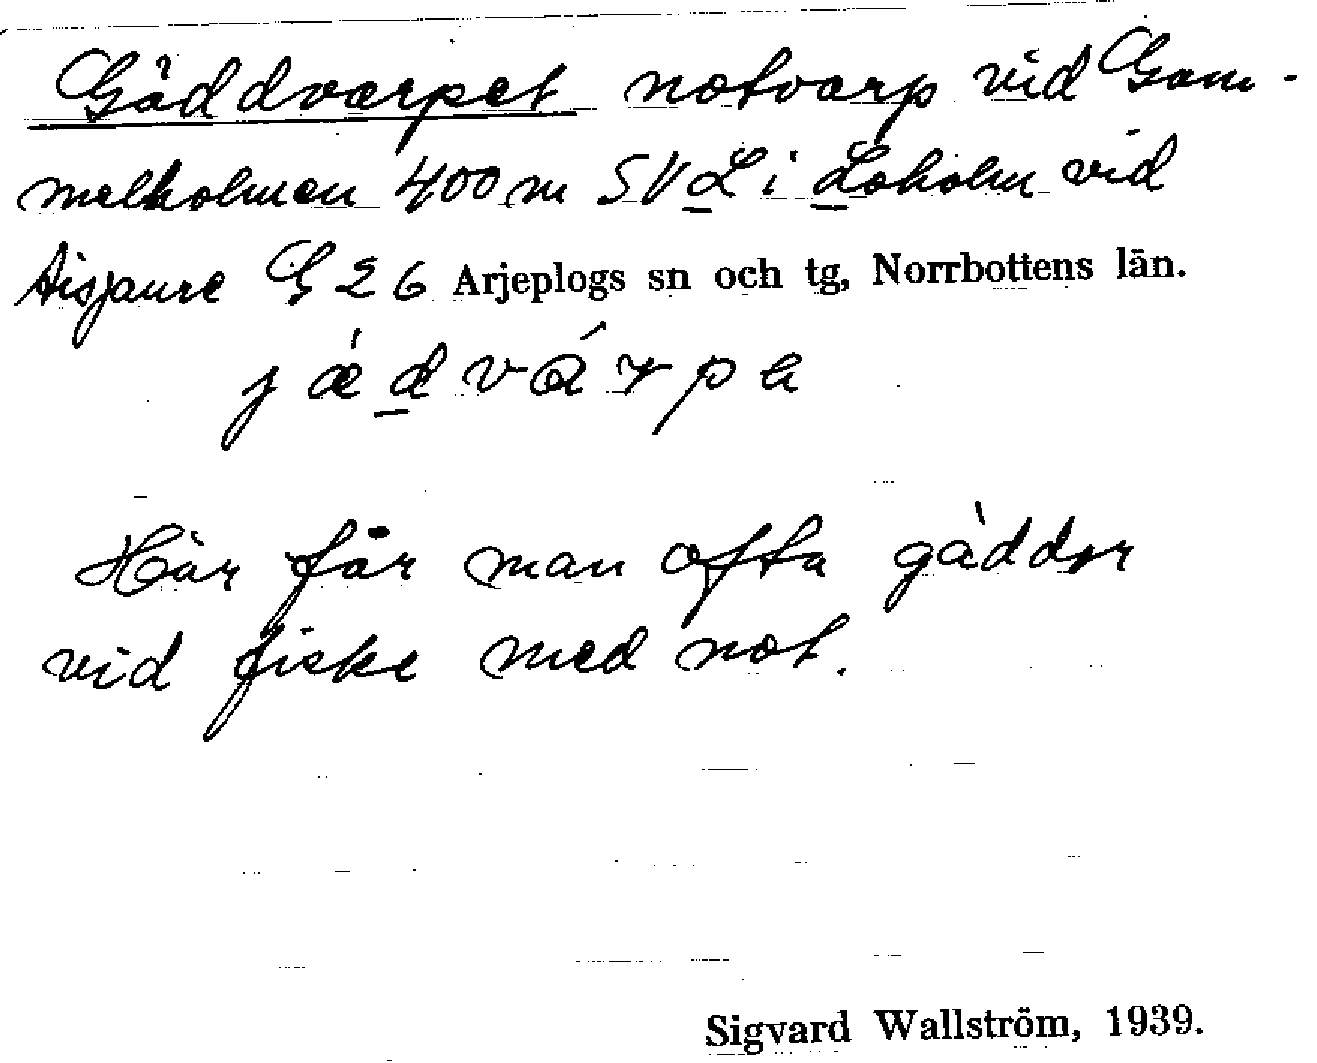 Gäddvarpet notvarp vid Gam-
melholmen 400 m SV L i Loholm vid
Aisjaure G 26 Arjeplogs sn och tg, Norrbottens län.
jǽdvárpa
Här får man ofta gäddor
vid fiske med not.
Sigvard Wallström, 1939.